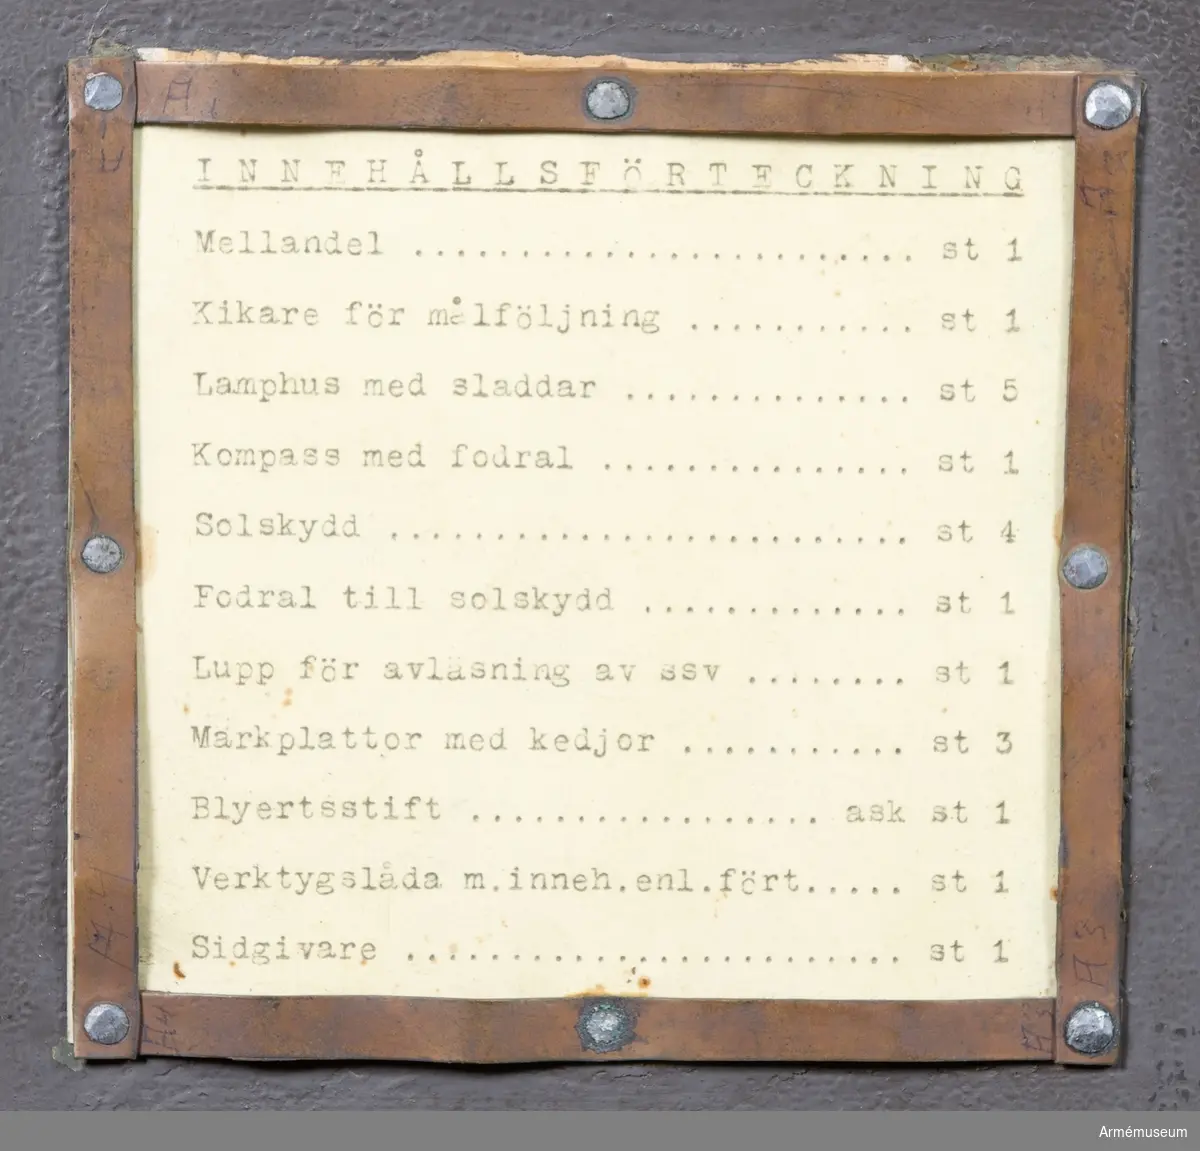 INNEHÅLLSFÖRTECKNING
Mellandel ........................ st 1
Kikare för målföljning ........... st 1
Lamphus med sladdar .............. st 5
Kompass med fodral ............... st 1
Solskydd ......................... st 4
Fodral till solskydd ............. st 1
Lupp för avläsning av ssv ........ st 1
Markplattor med kedjor ........... st 3
Blyertsstift ................. ask st 1
Verktygslåda m.inneh.enl.fört..... st 1
Sidgivare ........................ st 1
A 3
Armémuseum